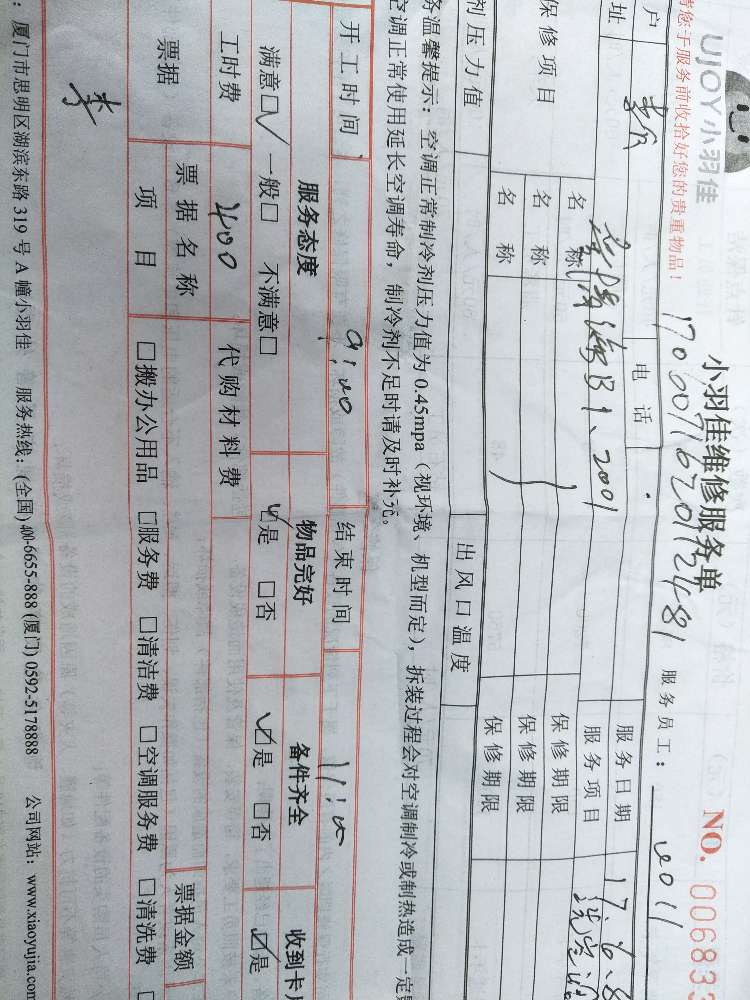 UJOY小羽佳
小羽佳维修服务单
NO. 00683
您于服务前收拾好您的贵重物品！
1706071620112481
服务员工：
户
李
电话
服务日期
17.6.8
址
2001
服务项目
洗空调
保修项目
名称
保修期限
名称
保修期限
名称
保修期限
剂压力值
出风口温度
务温馨提示：空调正常制冷剂压力值为0.45mpa（视环境、机型而定），拆装过程会对空调制冷或制热造成一定
空调正常使用延长空调寿命，制冷剂不足时请及时补充。
开工时间
9:00
结束时间
服务态度
物品完好
备件齐全
收到卡
满意□✓ 一般□ 不满意□
☑是 □否
☑是 □否
☑是
工时费
400
代购材料费
票据
票据名称
票据金额
项目
□搬办公用品 □服务费 □清洁费 □空调服务费 □清洗费
李
：厦门市思明区湖滨东路319号A幢小羽佳 服务热线：(全国) 400-6655-888 (厦门) 0592-5178888 公司网站：www.xiaoyujia.com